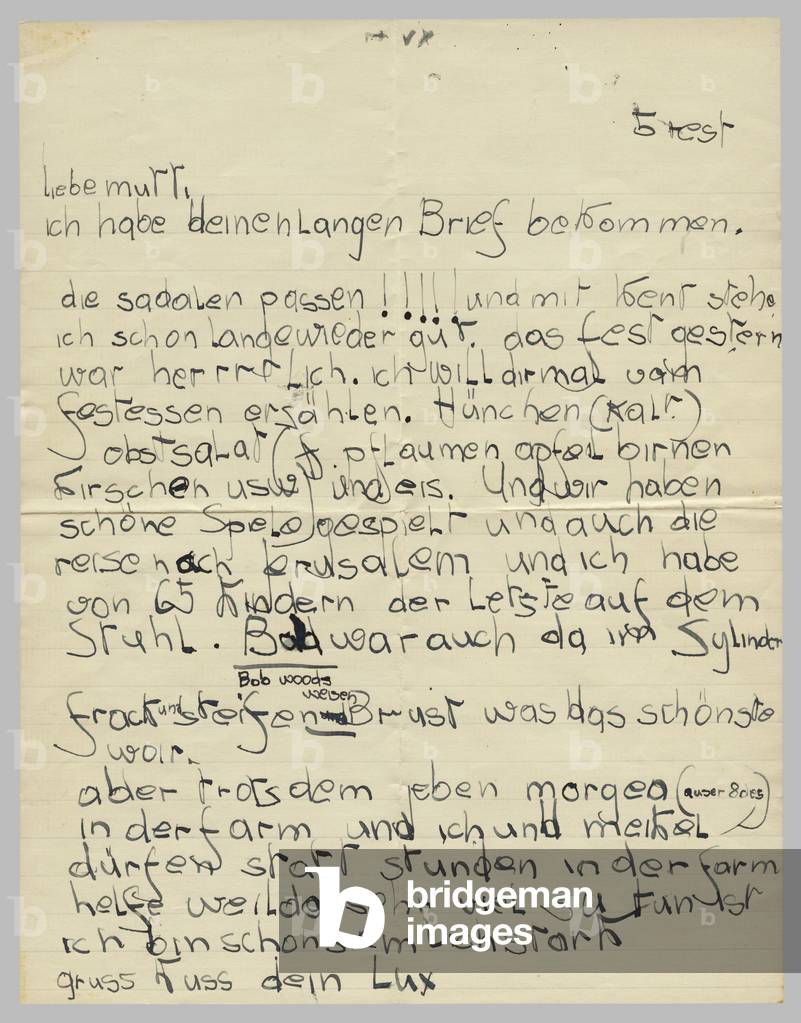 liebe mutt,
ich habe deinen langen Brief bekommen.
die sadalen passen !!!!! und mit Kent stehe
ich schon lange wieder gut. das fest gestern
war herrrlich. ich will dir mal vom
festessen ersählen. Hünchen (Kalt)
obstsalat ( pflaumen apfel birnen
kirschen usw) und eis. Und wir haben
schöne Spiele gespielt und auch die
reise nach Jerusalem und ich habe
von 65 Kindern der letste auf dem
Stuhl. Bob war auch da im Sylinder
Bob woods
weisen
frack und steifen Brust was das schönste
war.
aber trotsdem jeben morgen (auser 8 bes)
in der farm und ich und meikel
dürfen statt stunden in der farm
helfe weil da sehr viel zu tun ist
ich bin schon stark
gruss kuss dein Lux
bridgeman
images